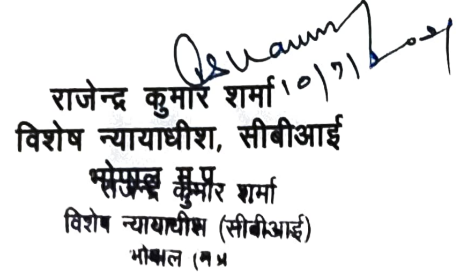 10/7/2024
राजेन्द्र कुमार शर्मा
विशेष न्यायाधीश, सीबीआई
भोपाल म.प्र.
राजेन्द्र कुमार शर्मा
विशेष न्यायाधीश (सीबीआई)
भोपाल (म प्र